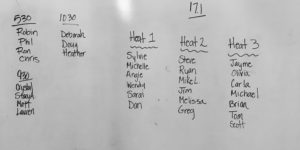 17.1
530
Robin
Phil
Ron
Chris
930
Crystal
Matt
Lauren
1030
Deborah
Doug
Heather
Heat 1
Sylvie
Michelle
Angie
Wendy
Sarah
Dan
Heat 2
Steve
Ryan
Mike L
Jim
Melissa
Greg
Heat 3
Jayme
Olivia
Carla
Michael
Brian
Tom
Scott